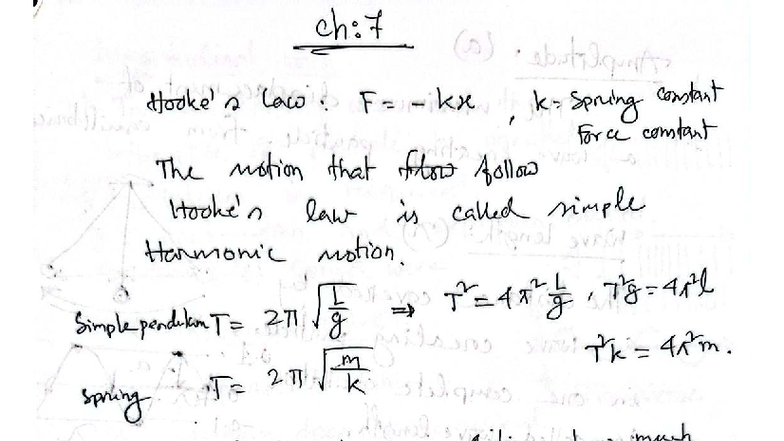 ch:7
Hooke's law: F = -kx, k = Spring constant
Force constant
The motion that flow follow
Hooke's law is called simple
Harmonic motion.
Simple pendulum T = 2π √(L/g) ⇒ T² = 4π² L/g, T²g = 4π²l
T²k = 4π²m.
Spring T = 2π √(m/k)
much